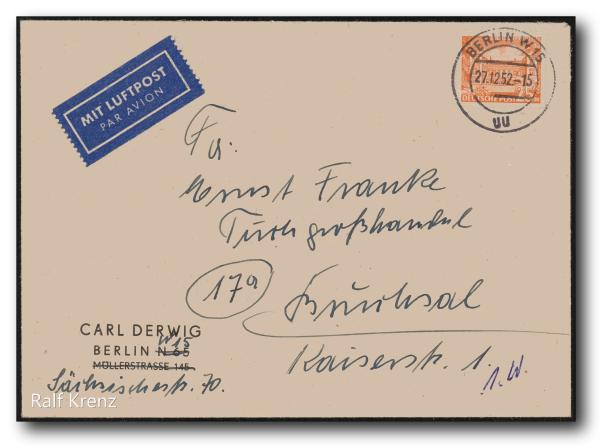 MIT LUFTPOST
PAR AVION
BERLIN W 15
27.12.52.-15
uu
DEUTSCHE POST
Fa.
Ernst Franke
Tuchgroßhandel
17a
Bruchsal
Kaiserstr. 1.
CARL DERWIG
W 15
BERLIN N 65
MÜLLERSTRASSE 145
Sächsischestr. 70.
Ralf Krenz